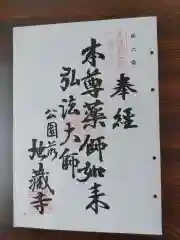 第六番
奉経
本尊薬師如来
弘法大師
地蔵寺